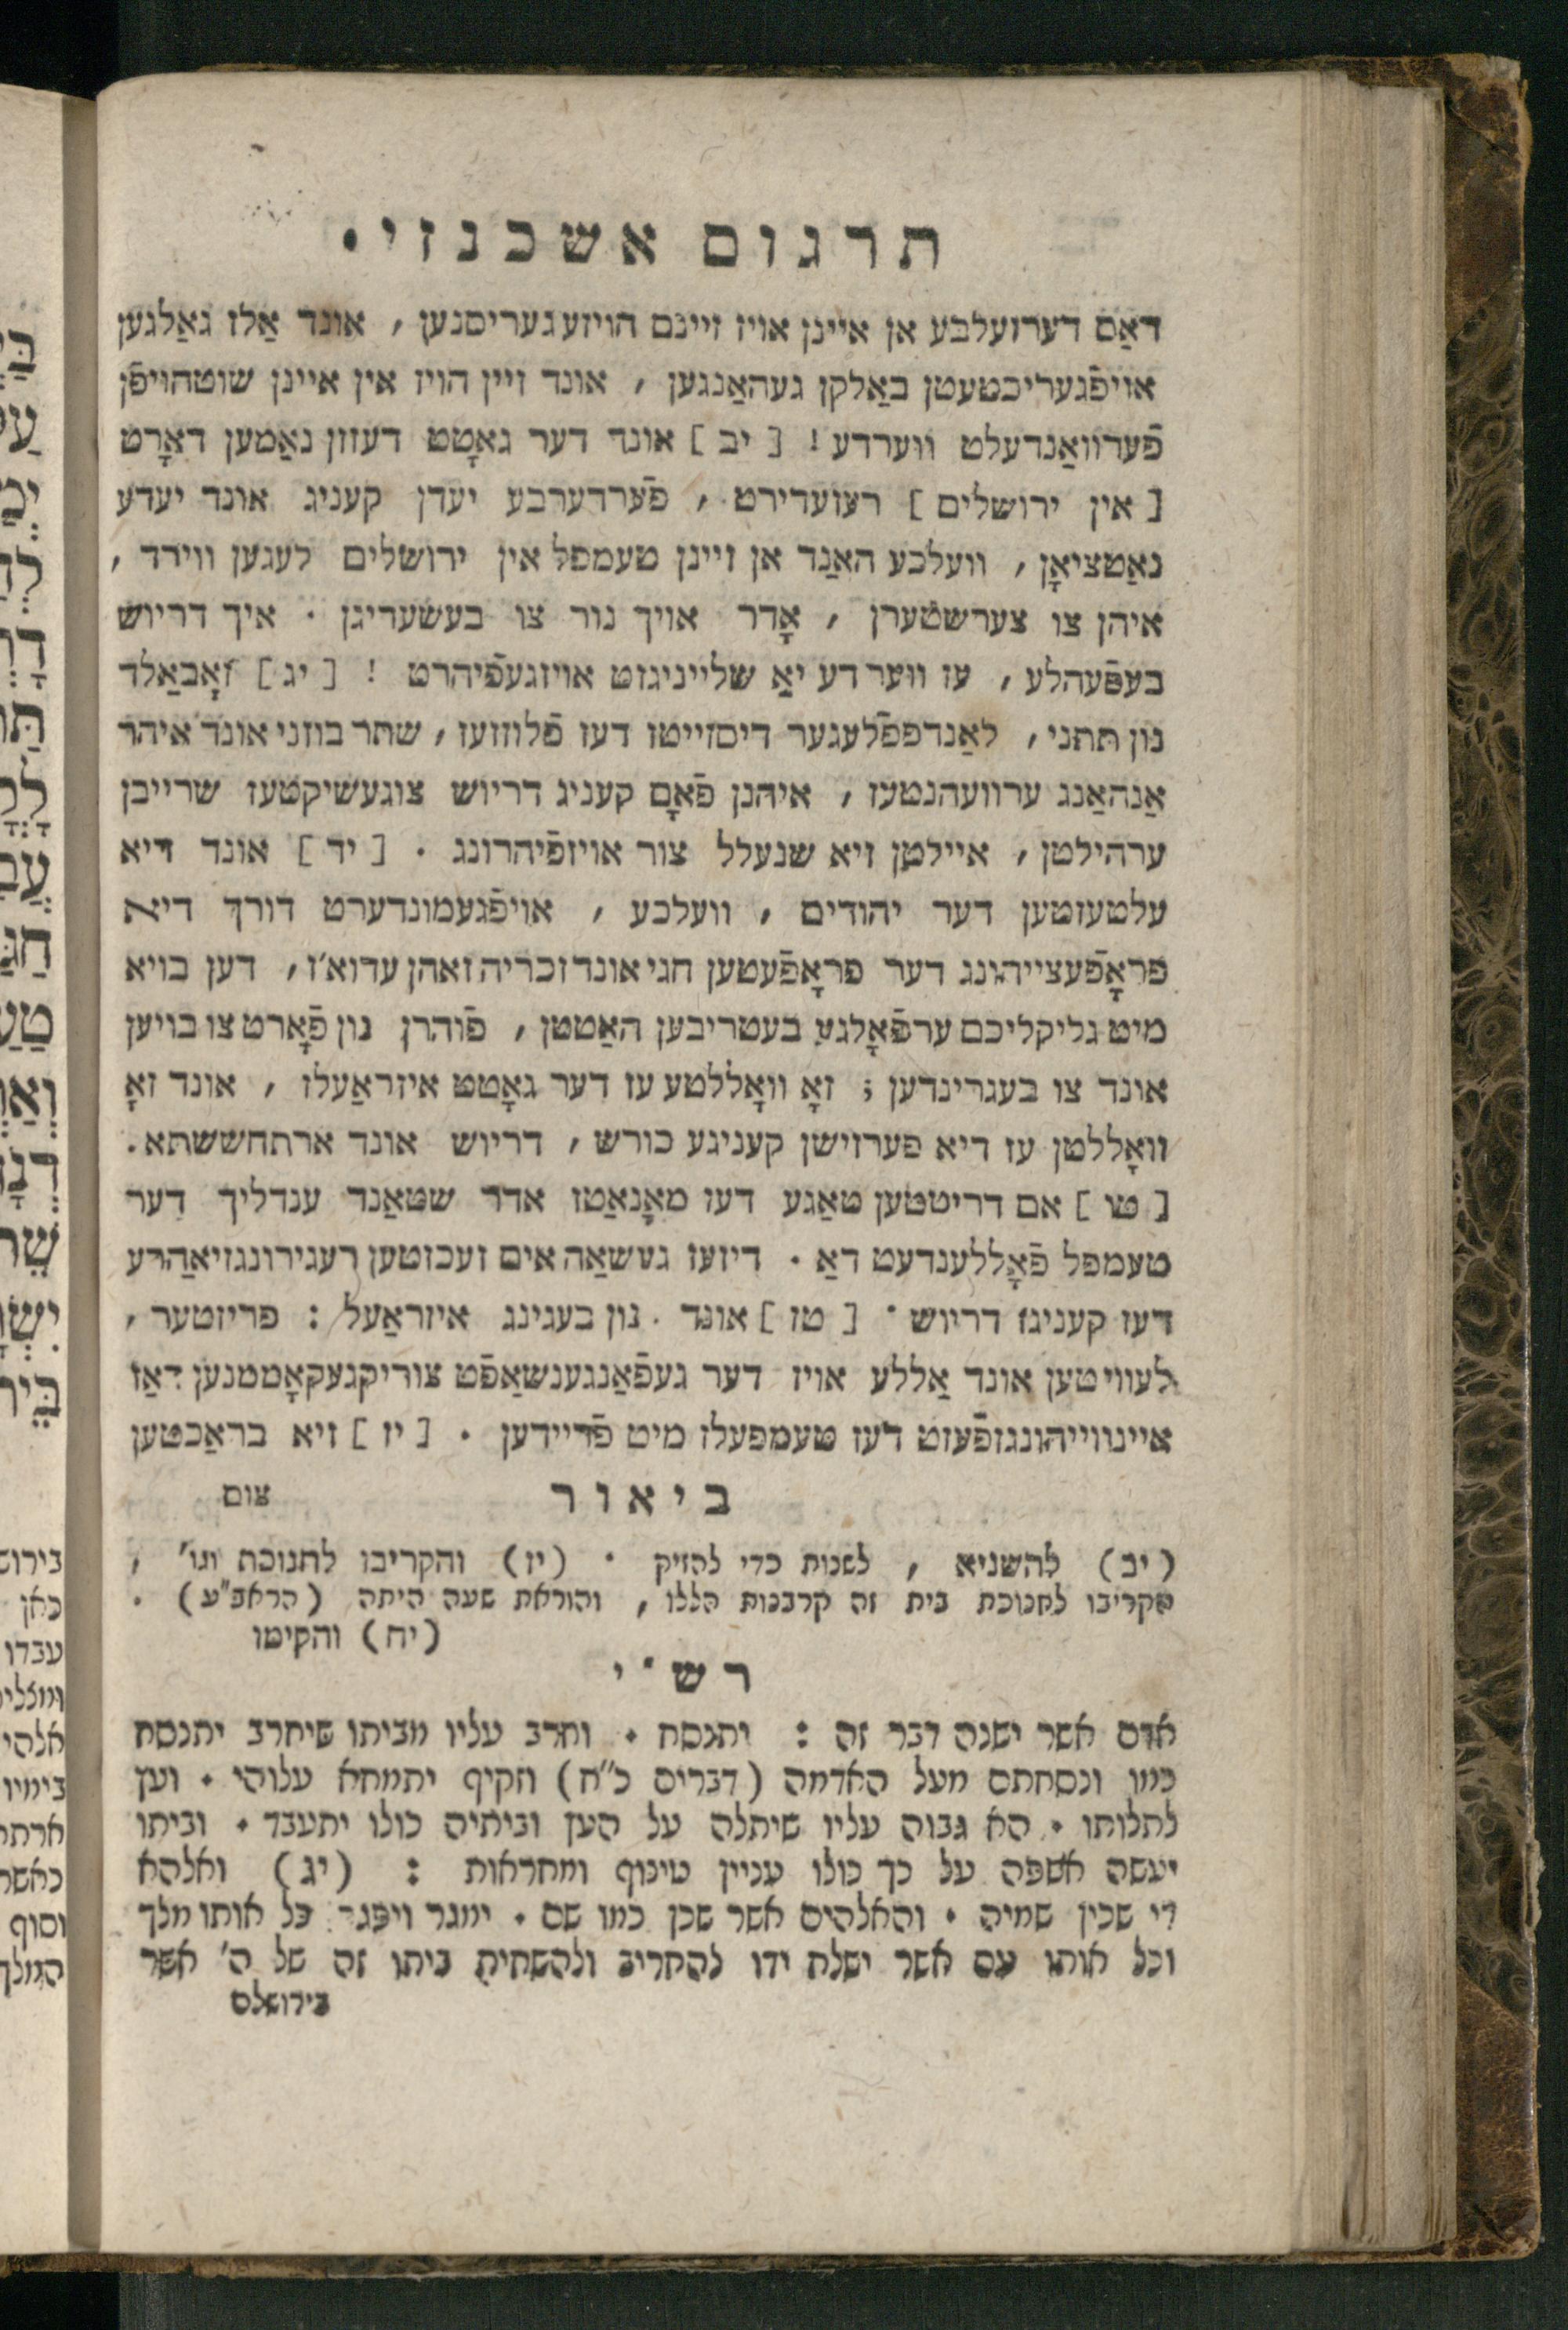 תרגום אשכנזי .
דאַס דערזעלבע אן איינן אויז זיינם הויזע געריסנען , אונד אַלז גאַלגען
אויפֿגעריכטעטן באַלקן געהאַנגען , אונד זיין הויז אין איינן שוטהויפֿן
פֿערוואַנדעלט ווערדע ! [ יב ] אונד דער גאָטט דעזזן נאַמען דאָרט
[ אין ירושלים ] רעזעדירט , פֿערדערבע יעדן קעניג אונד יעדע
נאַטציאָן , וועלכע האַנד אן זיינן טעמפל אין ירושלים לעגען ווירד ,
איהן צו צערשטערן , אָדר אויך נור צו בעשעריגן . איך דריוש
בעפֿעהלע , עז ווערדע יאַ שלייניגזט אויזגעפֿיהרט ! [ יג ] זאָבאַלד
נון תתני , לאַנדפפֿלעגער דיסזייטז דעז פֿלוזזעז , שתר בוזני אונד איהר
אַנהאַנג ערוועהנטעז , איהנן פֿאָם קעניג דריוש צוגעשיקטעז שרייבן
ערהילטן , איילטן זיא שנעלל צור אויזפֿיהרונג . [ יד ] אונד דיא
עלטעזטען דער יהודים , וועלכע , אויפֿגעמונדערט דורך דיא
פראָפֿעצייהונג דער פראָפֿעטען חגי אונד זכריה זאהן עדוא'ז , דען בויא
מיט גליקליכם ערפֿאָלגע בעטריבען האַטטן , פֿוהרן נון פֿאָרט צו בויען
אונד צו בעגרינדען ; זאָ וואָללטע עז דער גאָטט איזראַעלז , אונד זאָ
וואָללטן עז דיא פערזישן קעניגע כורש , דריוש אונד ארתחששתא .
[ טו ] אם דריטטען טאַגע דעז מאָנאַטז אדר שטאַנד ענדליך דער
טעמפל פֿאָללענדעט דאַ . דיזעז געשאַה אים זעכזטען רעגירונגזיאַהרע
דעז קעניגז דריוש . [ טז ] אונד . נון בעגינג איזראַעל : פריזטער ,
לעוויטען אונד אַללע אויז דער געפֿאַנגענשאַפֿט צוריקגעקאָממנען דאַז
איינווייהונגזפֿעזט דעז טעמפעלז מיט פֿריידען . [ יז ] זיא בראַכטען
ביאור צום
(יב) להשניא , לשנות כדי להזיק . (יז) והקריבו לחנוכת וגו' ,
הקריבו לחנוכת בית זה קרבנות הללו , והוראת שעה היתה (הראב"ע) .
(יח) והקימו
רש"י
אדם אשר ישנה דבר זה : יתנסח . וחרב עליו מביתו שיחרב יתנסח
כמו ונסחתם מעל האדמה (דברים כ"ח) וזקיף יתמחא עלוהי . ועץ
לתלותו . הא גבוה עליו שיתלה על העץ וביתיה כולו יתעבד . וביתו
יעשה אשפה על כך כולו עניין טינוף ומחראות : (יג) ואלהא
די שכין שמיה . והאלהים אשר שכן כמו שם . ימגר ויפגר כל אותו מלך
וכל אותו עם אשר ישלח ידו להחריב ולהשחית ביתו זה של ה' אשר
בירושלם